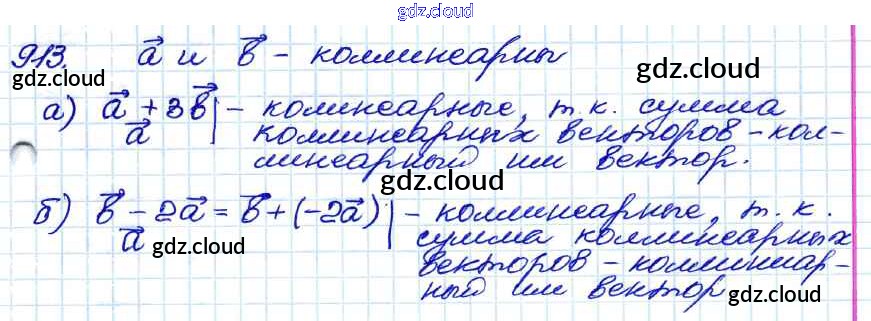 gdz.cloud
913. a⃗ и b⃗ - коллинеарны
gdz.cloud gdz.cloud
а) a⃗ + 3b⃗ | - колинеарные, т.к. сумма
a⃗ | коллинеарных векторов - кол-
gdz.cloud gdz.cloud
линеарный им вектор.
gdz.cloud
б) b⃗ - 2a⃗ = b⃗ + (-2a⃗) | - коллинеарные, т.к.
a⃗ gdz.cloud | сумма коллинеарных
gdz.cloud
векторов - коллинеар-
ный им вектор gdz.cloud